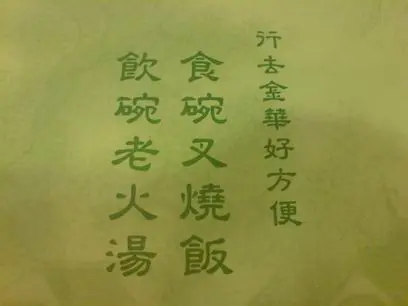 行去金華好方便
食碗叉燒飯
飲碗老火湯